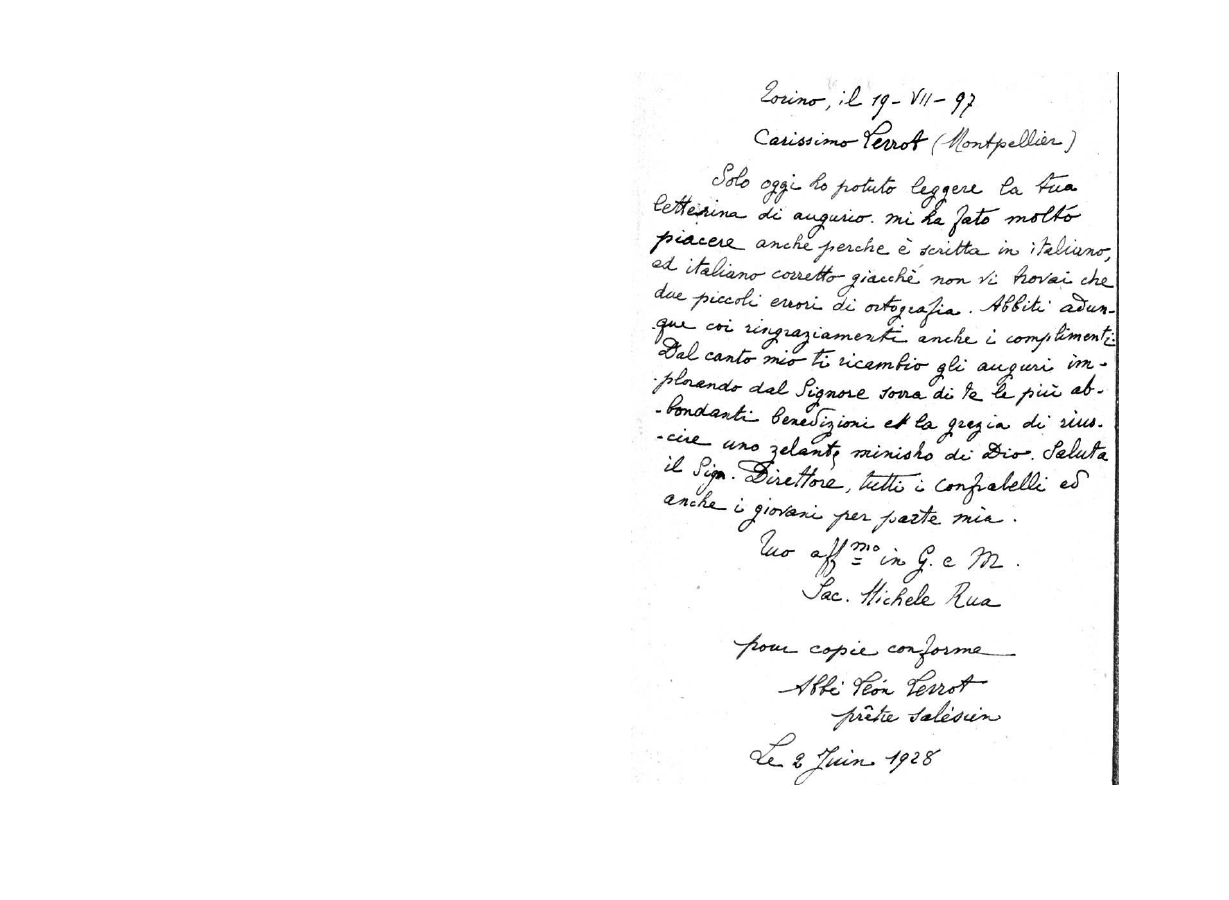 Torino, il 19-VII-97
Carissimo Perrot (Montpellier)
Solo oggi ho potuto leggere la tua
letterina di augurio. mi ha fato molto
piacere anche perche è scritta in italiano,
ed italiano corretto giacchè non vi trovai che
due piccoli errori di ortografia. Abbiti adun-
que coi ringraziamenti anche i complimenti
Dal canto mio ti ricambio gli auguri im-
plorando dal Signore sovra di te le più ab-
-bondanti benedizioni e la grazia di rius-
-cire uno zelante ministro di Dio. Saluta
il Sign. Direttore, tutti i confratelli ed
anche i giovani per parte mia.
Tuo aff mo in G. e M.
Sac. Michele Rua
pour copie conforme
Abbé Léon Perrot
prêtre salésien
Le 2 Juin 1928